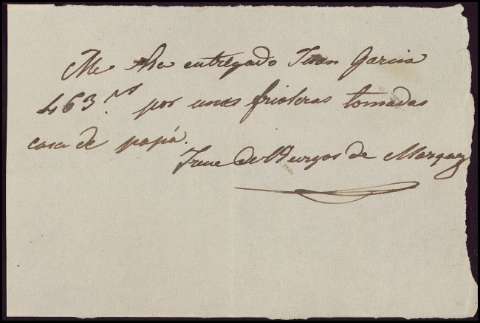 Me ha entregado Juan Garcia
463 rs por unas frioleras tomadas
casa de papá
Irene de Burgos de Marquez